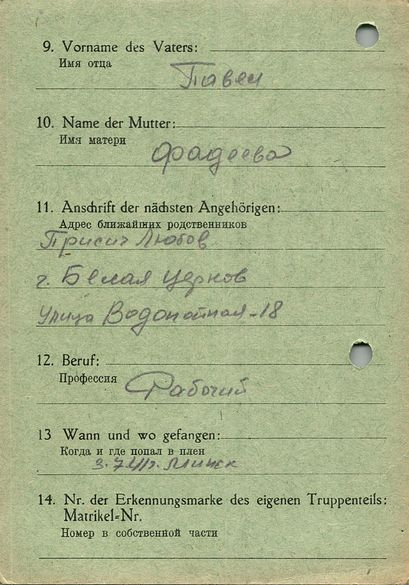 9. Vorname des Vaters:
Имя отца
Павел
10. Name der Mutter:
Имя матери
Фадеева
11. Anschrift der nächsten Angehörigen:
Адрес ближайших родственников
Любов
г. Белая церков
улица Водопойная-18
12. Beruf:
Профессия
Рабочий
13 Wann und wo gefangen:
Когда и где попал в плен
Минск
14. Nr. der Erkennungsmarke des eigenen Truppenteils:
Matrikel-Nr.
Номер в собственной части